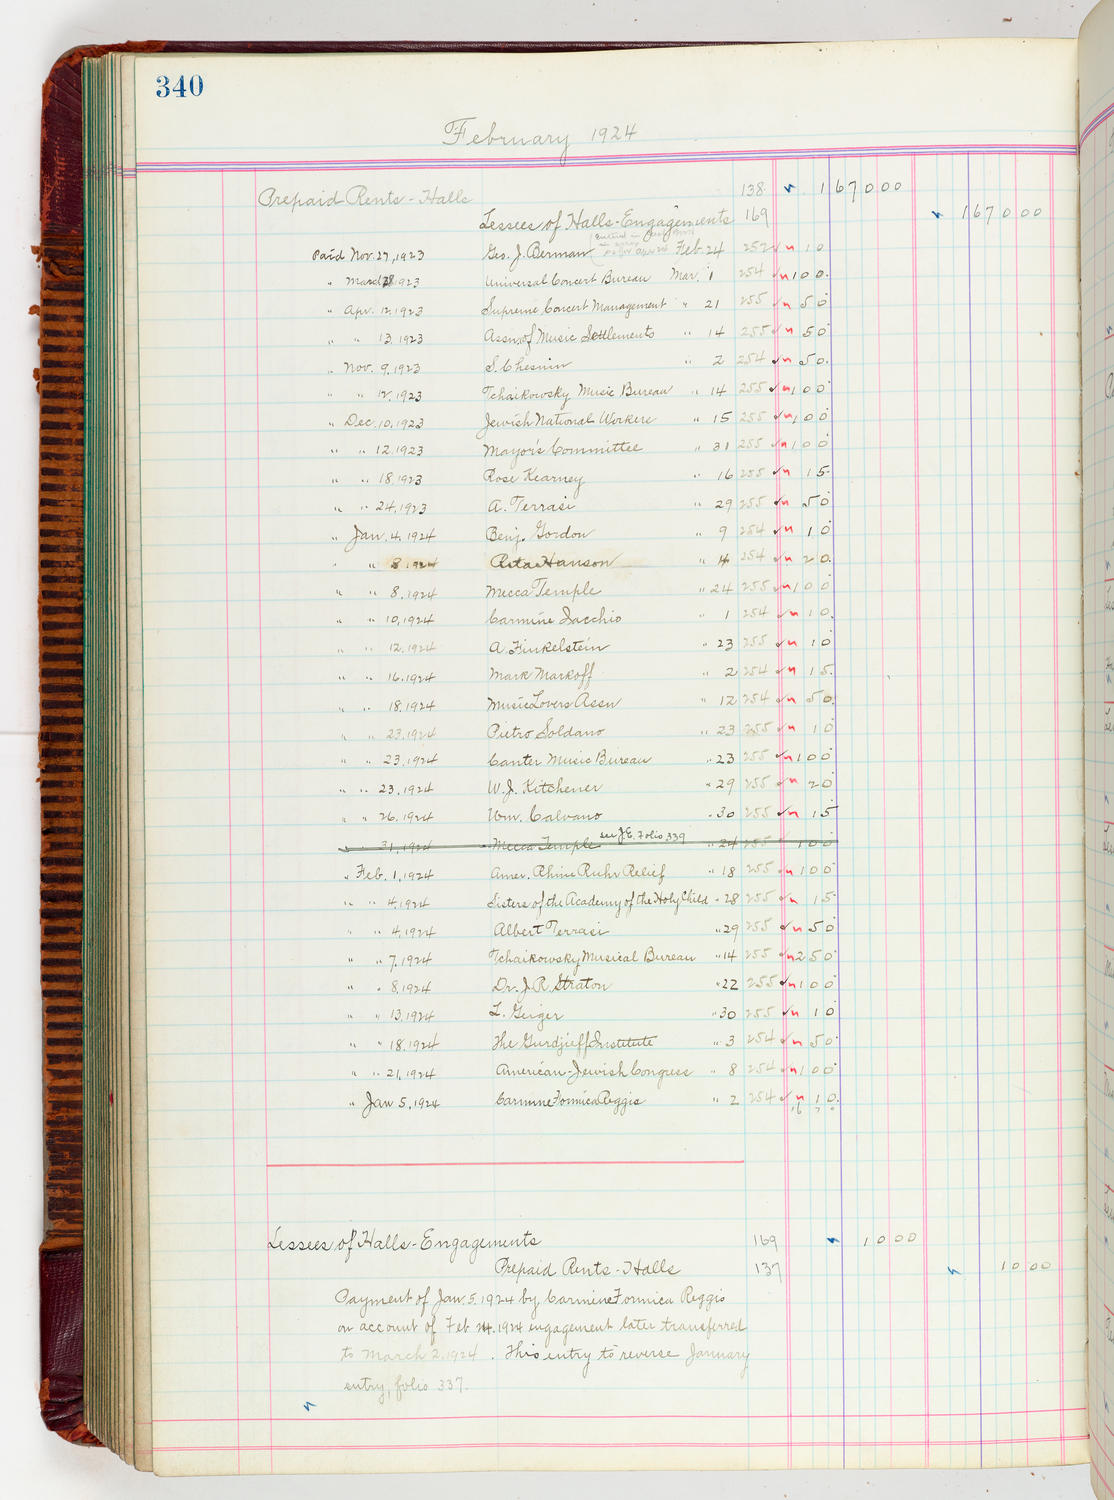 340
February 1924
Prepaid Rents - Halls 138 1 6 7 0 0 0
Lessees of Halls - Engagements 169 1 6 7 0 0 0
Paid Nov. 27, 1923 Geo. J. Berman Feb. 24 252 10
" March 28, 1923 Universal Concert Bureau Mar. 1 254 100
" Apr. 12, 1923 Supreme Concert Management " 21 255 50
" " 13, 1923 Assn. of Music Settlements " 14 255 50
" Nov. 9, 1923 S. Chesnin " 2 254 50
" " 12, 1923 Tchaikowsky Music Bureau " 14 255 100
" Dec. 10, 1923 Jewish National Workers " 15 255 100
" " 12, 1923 Mayor's Committee " 31 255 100
" " 18, 1923 Rose Kearney " 16 255 15
" " 24, 1923 A. Terrasi " 29 255 50
" Jan. 4, 1924 Benj. Gordon " 9 254 10
" 8, 1924 Rita Hanson " 4 254 20
" " 8, 1924 Mecca Temple " 24 255 100
" " 10, 1924 Carmine Iacchio " 1 254 10
" " 12, 1924 A. Finkelstein " 23 255 10
" " 16, 1924 Mark Markoff " 2 254 15
" " 18, 1924 Music Lovers Assn " 12 254 50
" " 23, 1924 Pietro Soldano " 23 255 10
" " 23, 1924 Canter Music Bureau " 23 255 100
" " 23, 1924 W. J. Kitchener " 29 255 20
" " 26, 1924 Wm. Calvano " 30 255 15
see J.E. Folio 339
" 31, 1924 Mecca Temple " 24 255 100
" Feb. 1, 1924 Amer. Rhine Ruhr Relief " 18 255 100
" " 4, 1924 Sisters of the Academy of the Holy Child " 28 255 15
" " 4, 1924 Albert Terrasi " 29 255 50
" " 7, 1924 Tchaikowsky Musical Bureau " 14 255 250
" " 8, 1924 Dr. J. R. Straton " 22 255 100
" " 13, 1924 L. Geiger " 30 255 10
" " 18, 1924 The Gurdjieff Institute " 3 254 50
" " 21, 1924 American-Jewish Congress " 8 254 100
" Jan 5, 1924 Carmine Formica Reggis " 2 254 10
16 7 0
Lessees of Halls - Engagements 169 1 0 0 0
Prepaid Rents - Halls 137 1 0 0 0
Payment of Jan. 5, 1924 by Carmine Formica Reggis
on account of Feb 24, 1924 engagement later transferred
to March 2, 1924. This entry to reverse January
entry, folio 337.